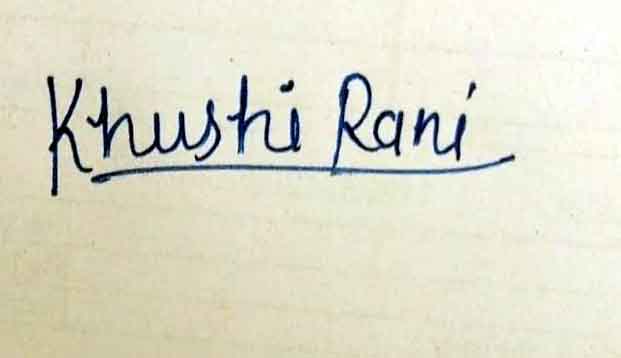 Khushi Rani